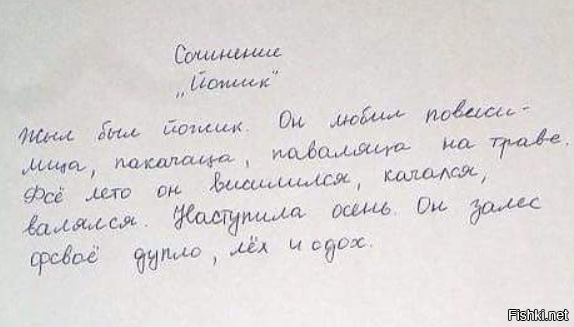 Сочинение
„Йожик“
Жыл был йожик. Он любил повиси-
лица, пакачаца, паваляца на траве.
Фсё лето он висилился, качался,
валялся. Наступила осень. Он залес
фсваё дупло, лёх и одох.
Fishki.net